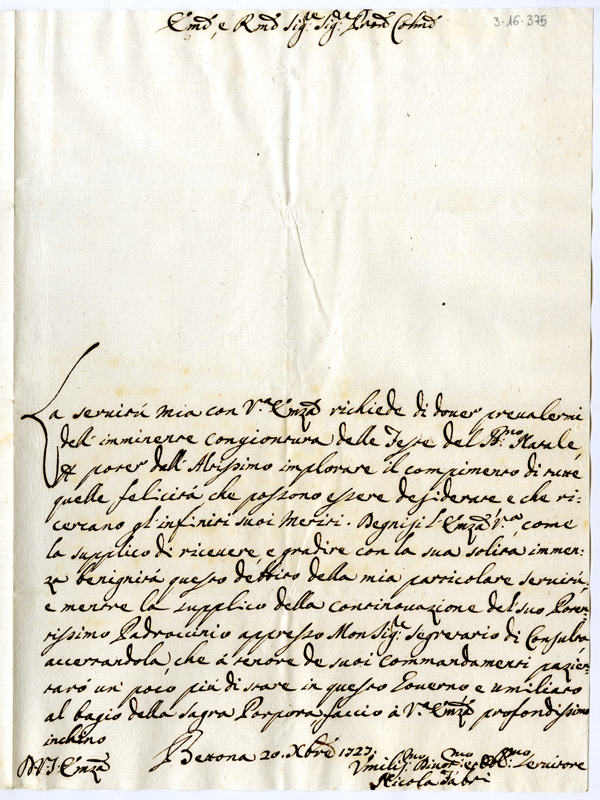 Emō, e Rmō Sig.re Sig.re Prōn Colmō
3-16-375
La servitù mia con V.ra Emza richiede di dover prevalermi
dell'imminente congiontura delle Feste del SS.mo Natale,
p poter dall'Altissimo implorare il compimento di tutte
quelle felicità che possono essere desiderate e che ri:
cercano gl'infiniti suoi Meriti. Degnisi l'Emza V.ra come
la supplico di ricevere, e gradire con la sua solita immen:
za benignità questo debito della mia particolare servitù,
e mentre la supplico della continouazione del suo Poten
tissimo Padroccinio appresso MonSig.r Segretario di Consulta
accertandola, che à tenore de suoi Commandamenti pazien:
tarò un poco più di stare in questo Governo e umiliato
al bagio della Sagra Porpora, faccio à V.ra Emza profondissimo
inchino
Bettona 20. Xbre 1727.
D V. I. Emza
Umiliss.mo Divot.mo et Obb.mo Servitore
Nicola Fabri